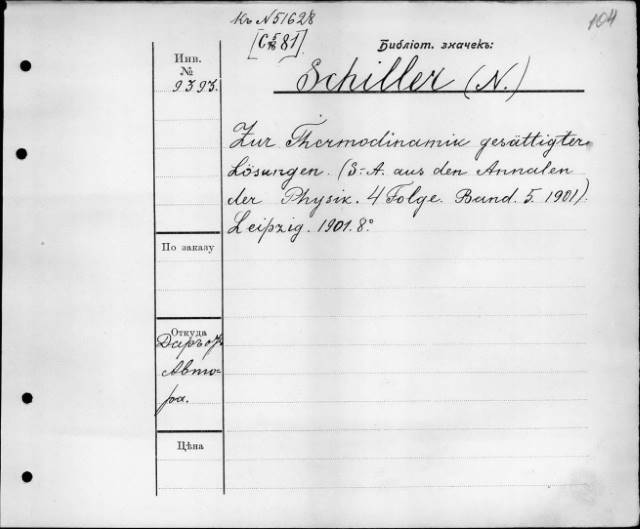 къ N 51628
104
[C 5/76 81]
Библіот. значекъ:
Инв.
№
9393.
Schiller (N.)
Zur Thermodinamik gesättigter
Lösungen. (S.-A. aus den Annalen
der Physik. 4 Folge. Band. 5. 1901).
Leipzig. 1901. 8°
По заказу
Откуда
Даръ
Авто-
ра.
Цѣна